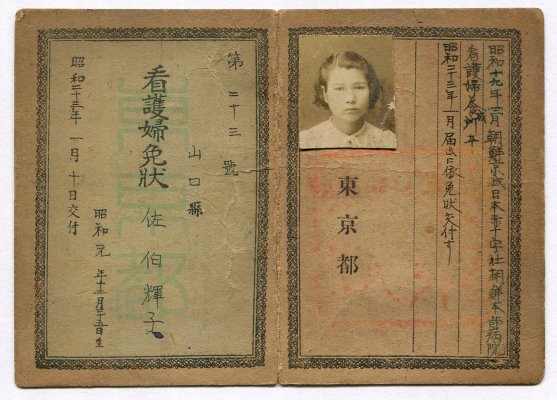 昭和十九年 月朝鮮京城日本赤十字社朝鮮本部病院
看護婦養成所 卒
昭和二十三年一月届出ニ依免狀交付ス
東京都
第二十三號
山口縣
看護婦免狀 佐伯輝子
昭和二十三年一月十日交付
昭和元年十二月 五日生
東京都